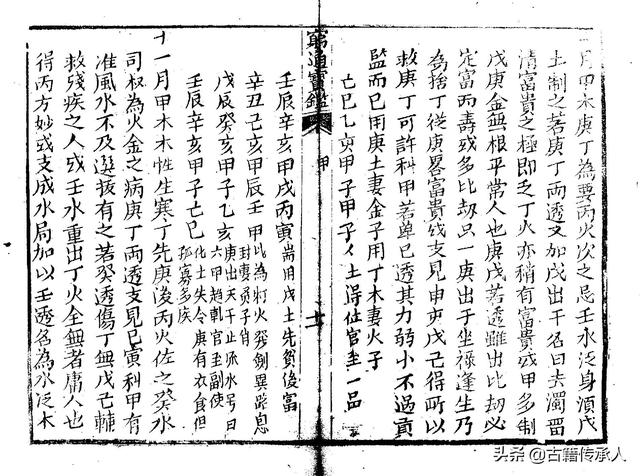 十月甲木庚丁為要丙火次之忌壬水泛身湏戊
土制之若庚丁兩透又加戊出干名曰去濁畱
清富貴之極即乏丁火亦稍有富貴或甲多制
戊庚金無根平常人也庚戊若透雖出比刼必
定富而壽或多比刼只一庚出子坐祿逢生乃
為捨丁從庚畧富貴或支見申亥戊己得所以
救庚丁可許科甲若单己透其力弱小不過貢
監而已用庚土妻金子用丁木妻火子
己巳乙亥甲子甲子 土得位官至一品
窮通寶鑑
甲
十一
壬辰辛亥甲戌丙寅 耑用戊土先貧後富
辛丑己亥甲辰壬申
戊辰癸亥甲子乙亥
壬辰辛亥甲子己巳
化土失令庚有衣食但
孤寡多疾
十一月甲木木性生寒丁先庚後丙火佐之癸水
司权為火金之病庚丁兩透支見巳寅科甲有
准風水不及選拔有之若癸透傷丁無戊己輔
救殘疾之人或壬水重出丁火全無者庸人也
得丙方妙或支成水局加以壬透名為水泛木
头条 @古籍传承人